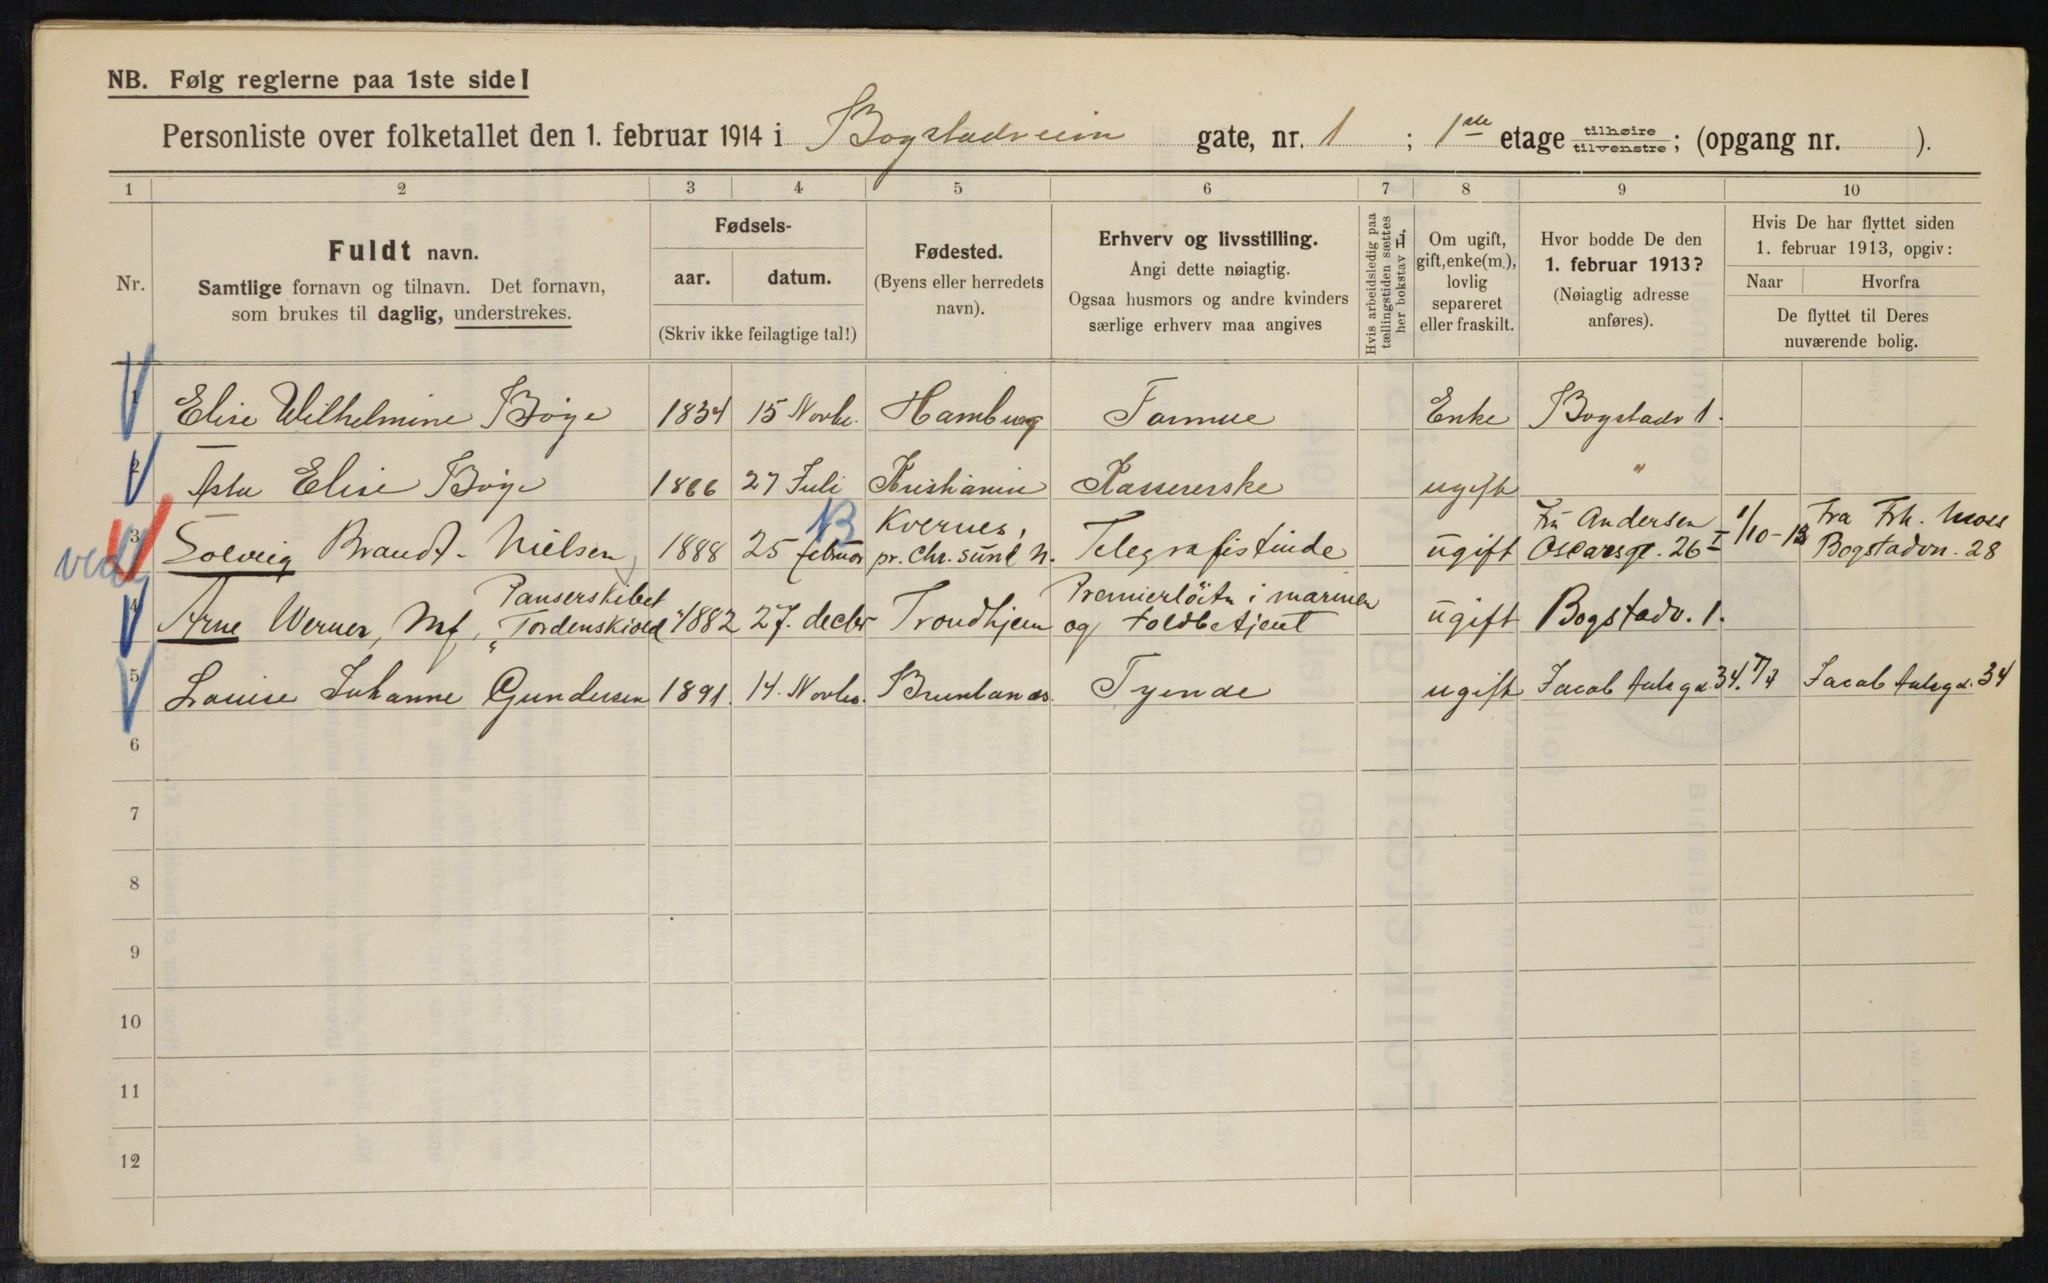 NB. Følg reglerne paa 1ste side!
Personliste over folketallet den 1. februar 1914 i Bogstadveien gate, nr. 1 ; 1ste etage tilhøire tilvenstre ; (opgang nr. ).
1 2 3 4 5 6 7 8 9 10
Nr.
Fuldt navn.
Samtlige fornavn og tilnavn. Det fornavn,
som brukes til daglig, understrekes.
Fødsels-
aar. datum.
(Skriv ikke feilagtige tal!)
Fødested.
(Byens eller herredets
navn).
Erhverv og livsstilling.
Angi dette nøiagtig.
Ogsaa husmors og andre kvinders
særlige erhverv maa angives
Hvis arbeidsledig paa
tællingstiden sættes
her bokstav H.
Om ugift,
gift, enke(m.),
lovlig
separeret
eller fraskilt.
Hvor bodde De den
1. februar 1913?
(Nøiagtig adresse
anføres).
Hvis De har flyttet siden
1. februar 1913, opgiv:
Naar Hvorfra
De flyttet til Deres
nuværende bolig.
1 Elise Wilhelmine Bøye 1834 15 Novbr. Hamburg Formue Enke Bogstadv 1.
2 Asta Elise Bøye 1866 27 Juli Kristiania Kassererske ugift "
B Kvernes, Fru Andersen 1/10-13 Fra Frk. Moss
3 Solveig Brandt-Nielsen 1888 25 februar pr. Chr. sund N. Telegrafistinde ugift Oscarsgt. 26 I Bogstadvn. 28
Panserskibet Premierløitn i marinen
4 Arne Werner, Mf, "Tordenskiold" 1882 27. decbr Trondhjem og toldbetjent ugift Bogstadv. 1.
5 Louise Johanne Gundersen 1891. 14. Novbr. Brunlanes. Tjende ugift Jacob Aalsgd. 34. Jacob Aalsgd. 34
6
7
8
9
10
11
12